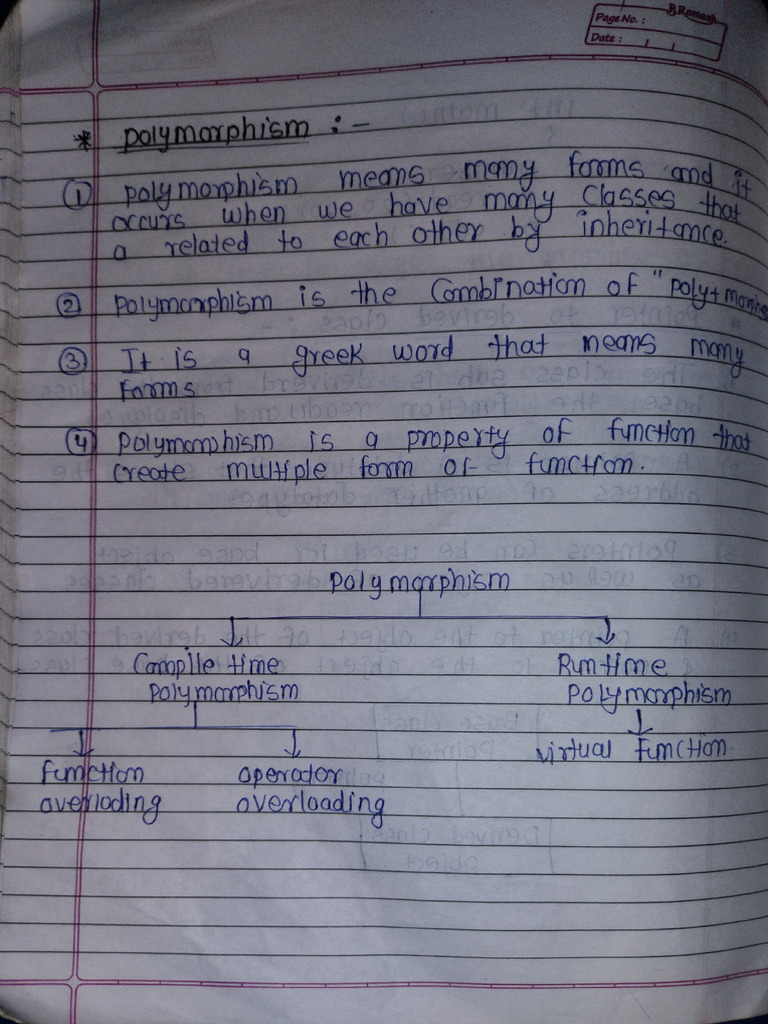 B.Ramesh
Page No. :
Date :
* polymorphism :-
① polymorphism means many forms and it
occurs when we have many classes that
a related to each other by inheritance.
② polymorphism is the Combination of "poly+morphs
③ It is a greek word that means many
forms
④ polymorphism is a property of function that
create multiple form of function.
polymorphism
Compile time
polymorphism
Runtime
polymorphism
virtual function.
function
overloding
operator
overloading